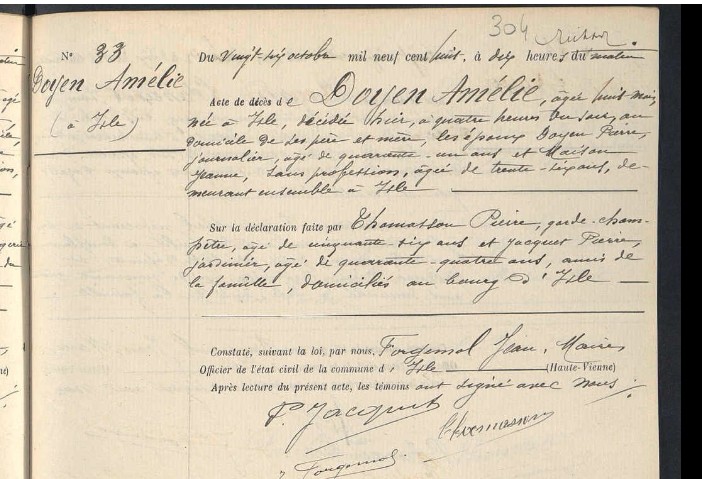 304
N° 33
Doyen Amélie
(à Isle)
Du vingt-six octobre mil neuf cent huit, à dix heures du matin
Acte de décès de Doyen Amélie, âgée huit mois,
née à Isle, décédée hier, à quatre heures du soir, au
domicile de ses père et mère, les époux Doyen Pierre,
journalier, âgé de quarante-un ans et Maison
Jeanne, sans profession, âgée de trente-six ans, de-
meurant ensemble à Isle
Sur la déclaration faite par Thomasson Pierre, garde-cham-
pêtre, âgé de cinquante-six ans et Jacquet Pierre,
jardinier, âgé de quarante-quatre ans, amis de
la famille, domiciliés au bourg d'Isle
Constaté, suivant la loi, par nous, Forgemol Jean, Maire,
Officier de l'état civil de la commune d'Isle (Haute-Vienne)
Après lecture du présent acte, les témoins ont signé avec nous.
P. Jacquet
Thomasson
Forgemol